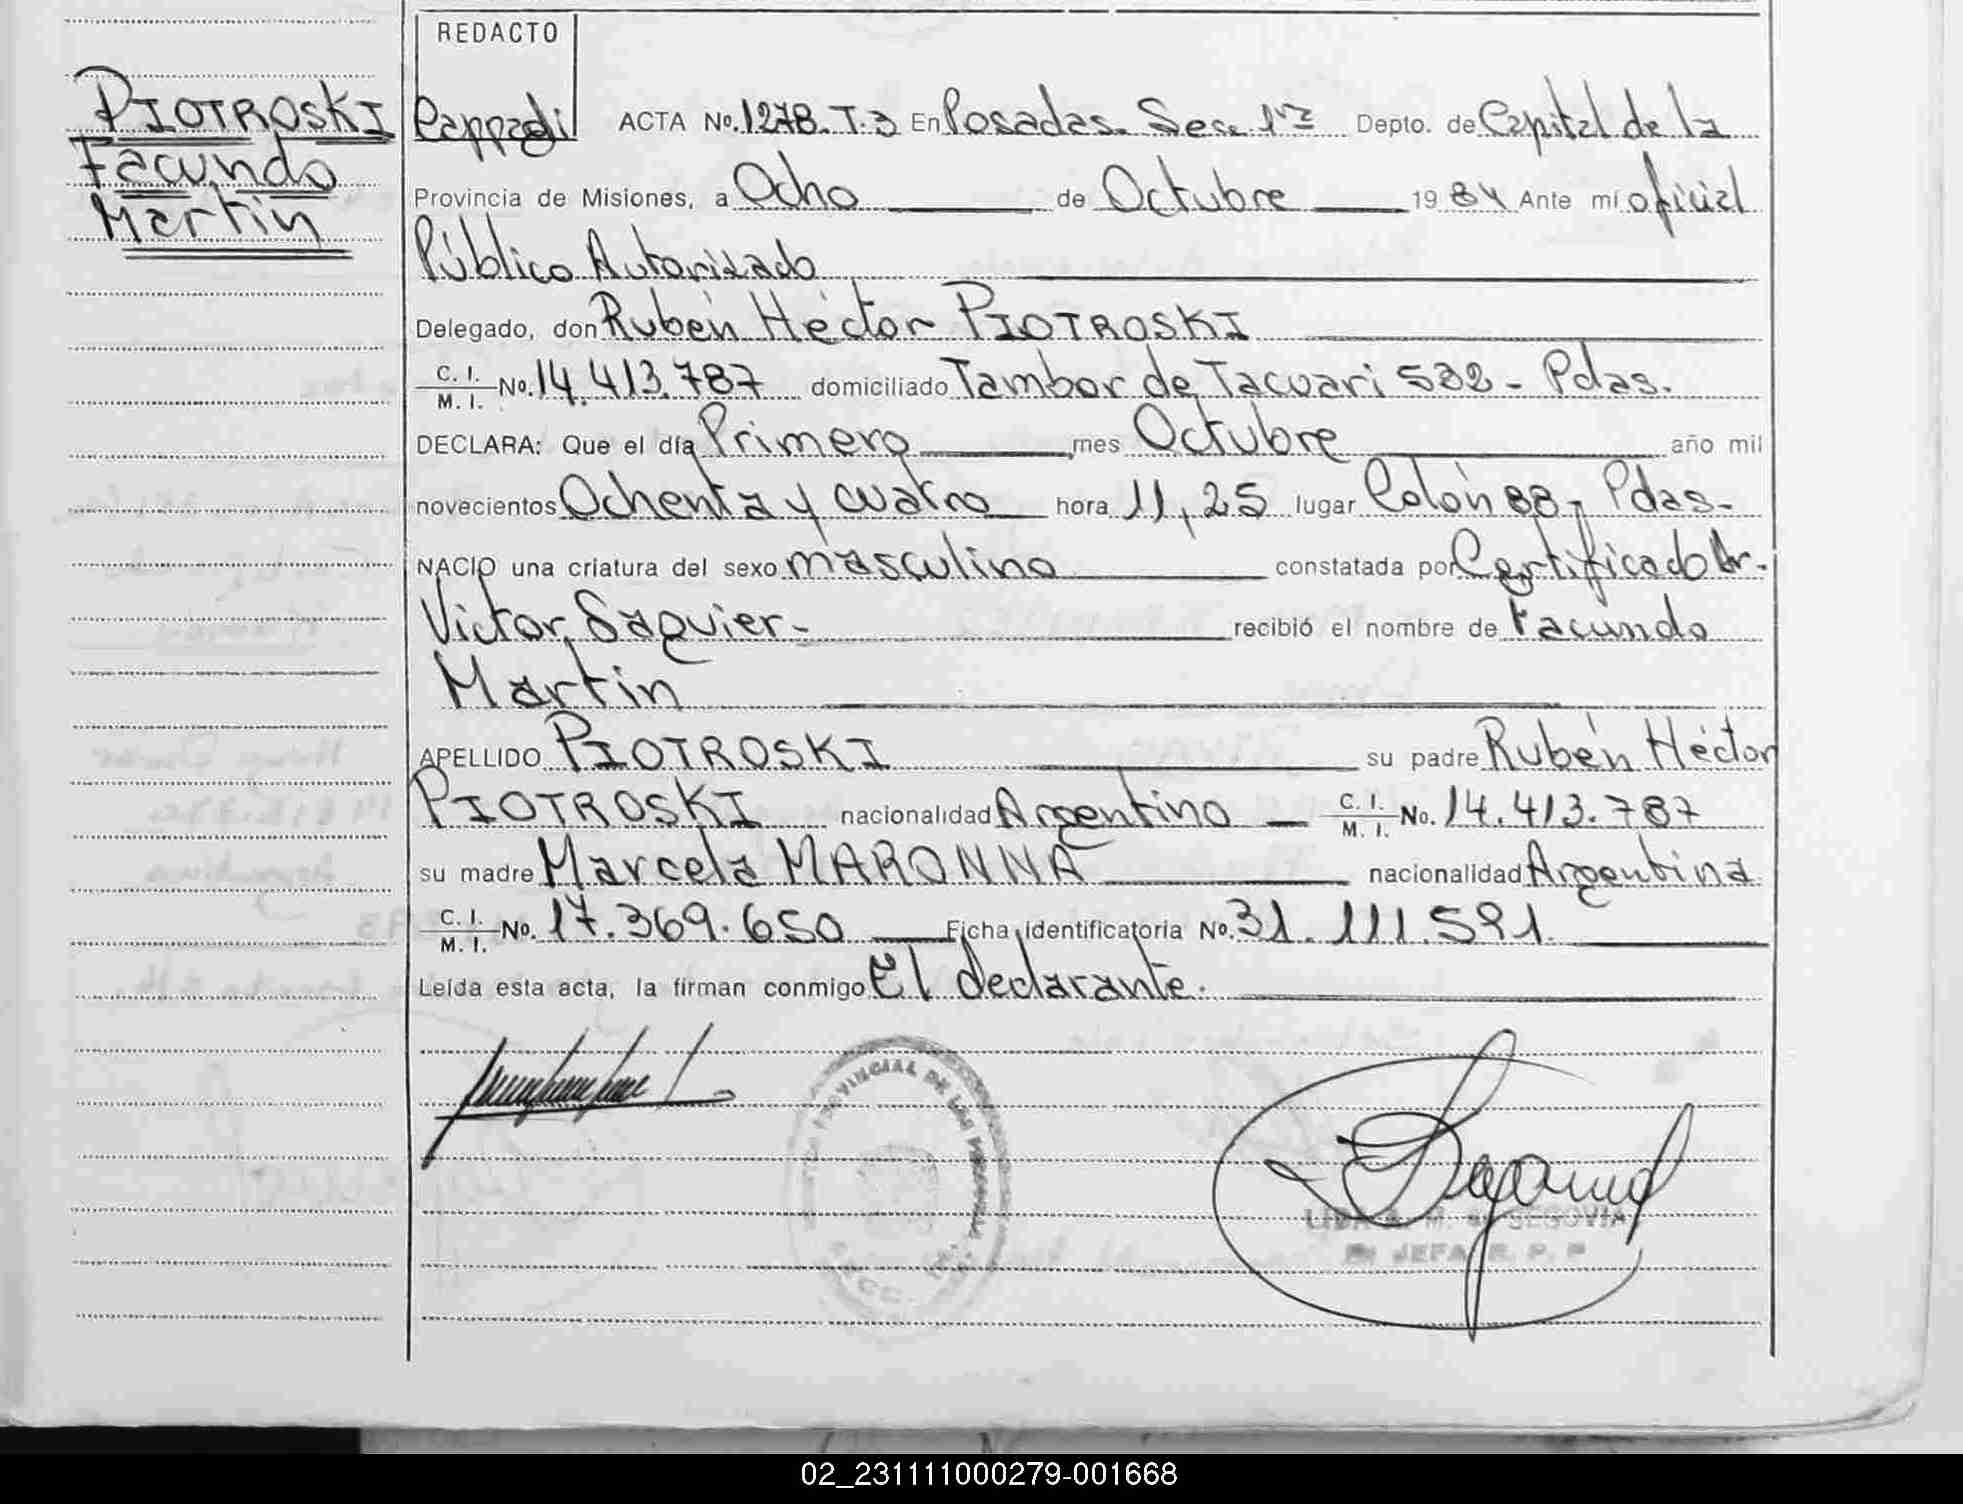 REDACTO
PIOTROSKI
Facundo
Martin
ACTA No. 1278. T.3 En Posadas. Secc. 1ra Depto. de Capital de la
Provincia de Misiones, a Ocho de Octubre 1984 Ante mí oficial
Público Autorizado
Delegado, don Rubén Héctor PIOTROSKI
C. I. M. I. No. 14.413.787 domiciliado Tambor de Tacuari 532 - Pdas.
DECLARA: Que el día Primero mes Octubre año mil
novecientos Ochenta y cuatro hora 11,25 lugar Colón 88 - Pdas-
NACIO una criatura del sexo masculino constatada por Certificado Dr.
Victor Saguier- recibió el nombre de Facundo
Martin
APELLIDO PIOTROSKI su padre Rubén Héctor
PIOTROSKI nacionalidad Argentino C. I. M. I. No. 14.413.787
su madre Marcela MARONNA nacionalidad Argentina
C. I. M. I. No. 17.369.650 Ficha identificatoria No. 31.111.591.
Leída esta acta, la firman conmigo el declarante.
PROVINCIAL DE LAS PERSONAS
M. de SEGOVIA
JEFA R. P. P
02_231111000279-001668